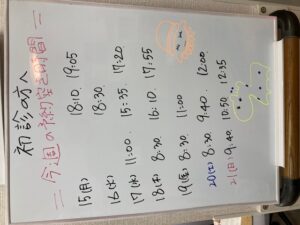 初診の方へ
ー今週の予約空き時間ー
15(月) 18:10. 19:05
16(火) 18:30
17(水) 11:00. 15:35. 17:20
18(木) 8:30. 16:10. 17:55
19(金) 8:30. 11:00
20(土) 8:30. 9:40. 12:00
21(日) 9:40. 10:50 12:35